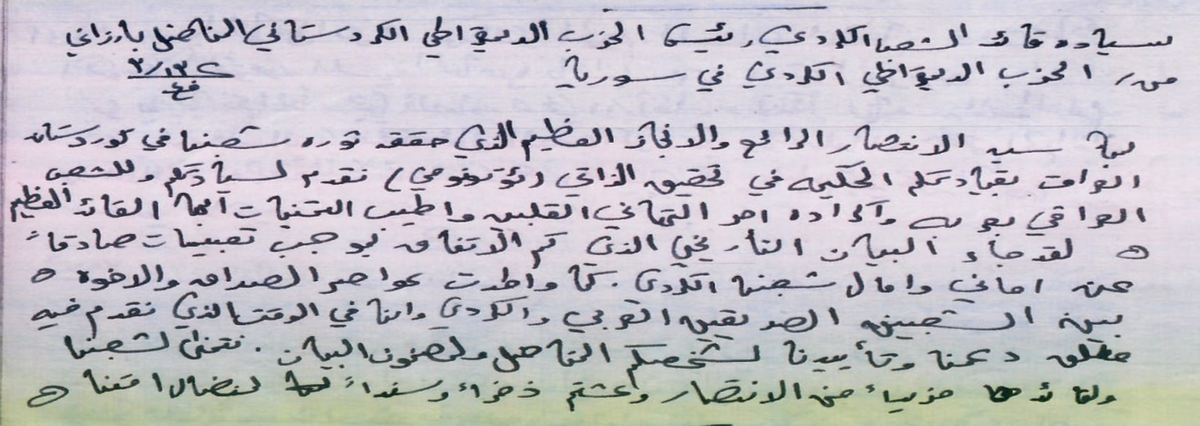 سيادة قائد الشعب الكردي رئيس الحزب الديمقراطي الكردستاني المناضل بارزاني
من/ الحزب الديمقراطي الكردي في سورية
بمناسبة الانتصار الرائع والانجاز العظيم الذي حققه ثورة شعبنا في كوردستان
العراق بقيادتكم الحكيمة في تحقيق الذاتي (ئوتونومي) نقدم لسيادتكم وللشعب
العراقي بعربه وأكراده احر التهاني القلبية واطيب التمنيات أيها القائد العظيم
لقد جاء البيان التأريخي الذي تم الاتفاق بموجب تعبيرات صادقاً
عن اماني وامال شعبنا الكردي. كما وطدت عواصر الصداقة والاخوة
بين الشعبين الصديقين العربي والكردي واننا في الوقت الذي نقدم فيه
مطلق دعمنا وتأييدنا لشخصكم المناضل ولمضمون البيان. نتمنى لشعبنا
ولقائدها مزيداً من الانتصار وعشتم ذخراً وسنداً لنضال امتنا